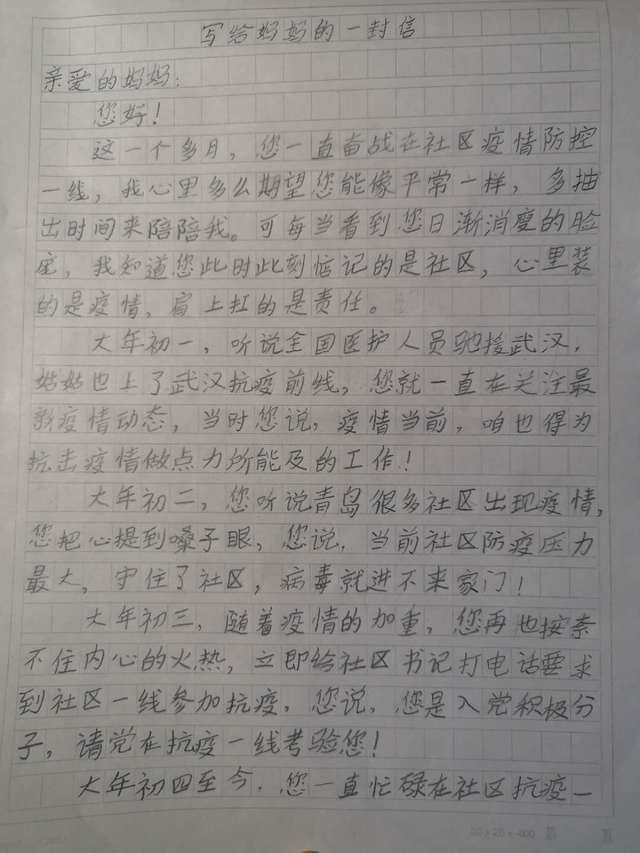 写给妈妈的一封信
亲爱的妈妈：
您好！
这一个多月，您一直奋战在社区疫情防控
一线，我心里多么期望您能像平常一样，多抽
出时间来陪陪我。可每当看到您日渐消瘦的脸
庞，我知道您此时此刻惦记的是社区，心里装
的是疫情，肩上扛的是责任。
大年初一，听说全国医护人员驰援武汉，
姑姑也上了武汉抗疫前线，您就一直在关注最
新疫情动态，当时您说，疫情当前，咱也得为
抗击疫情做点力所能及的工作！
大年初二，您听说青岛很多社区出现疫情，
您把心提到嗓子眼，您说，当前社区防疫压力
最大，守住了社区，病毒就进不来家门！
大年初三，随着疫情的加重，您再也按奈
不住内心的火热，立即给社区书记打电话要求
到社区一线参加抗疫，您说，您是入党积极分
子，请党在抗疫一线考验您！
大年初四至今，您一直忙碌在社区抗疫一
20×20=400